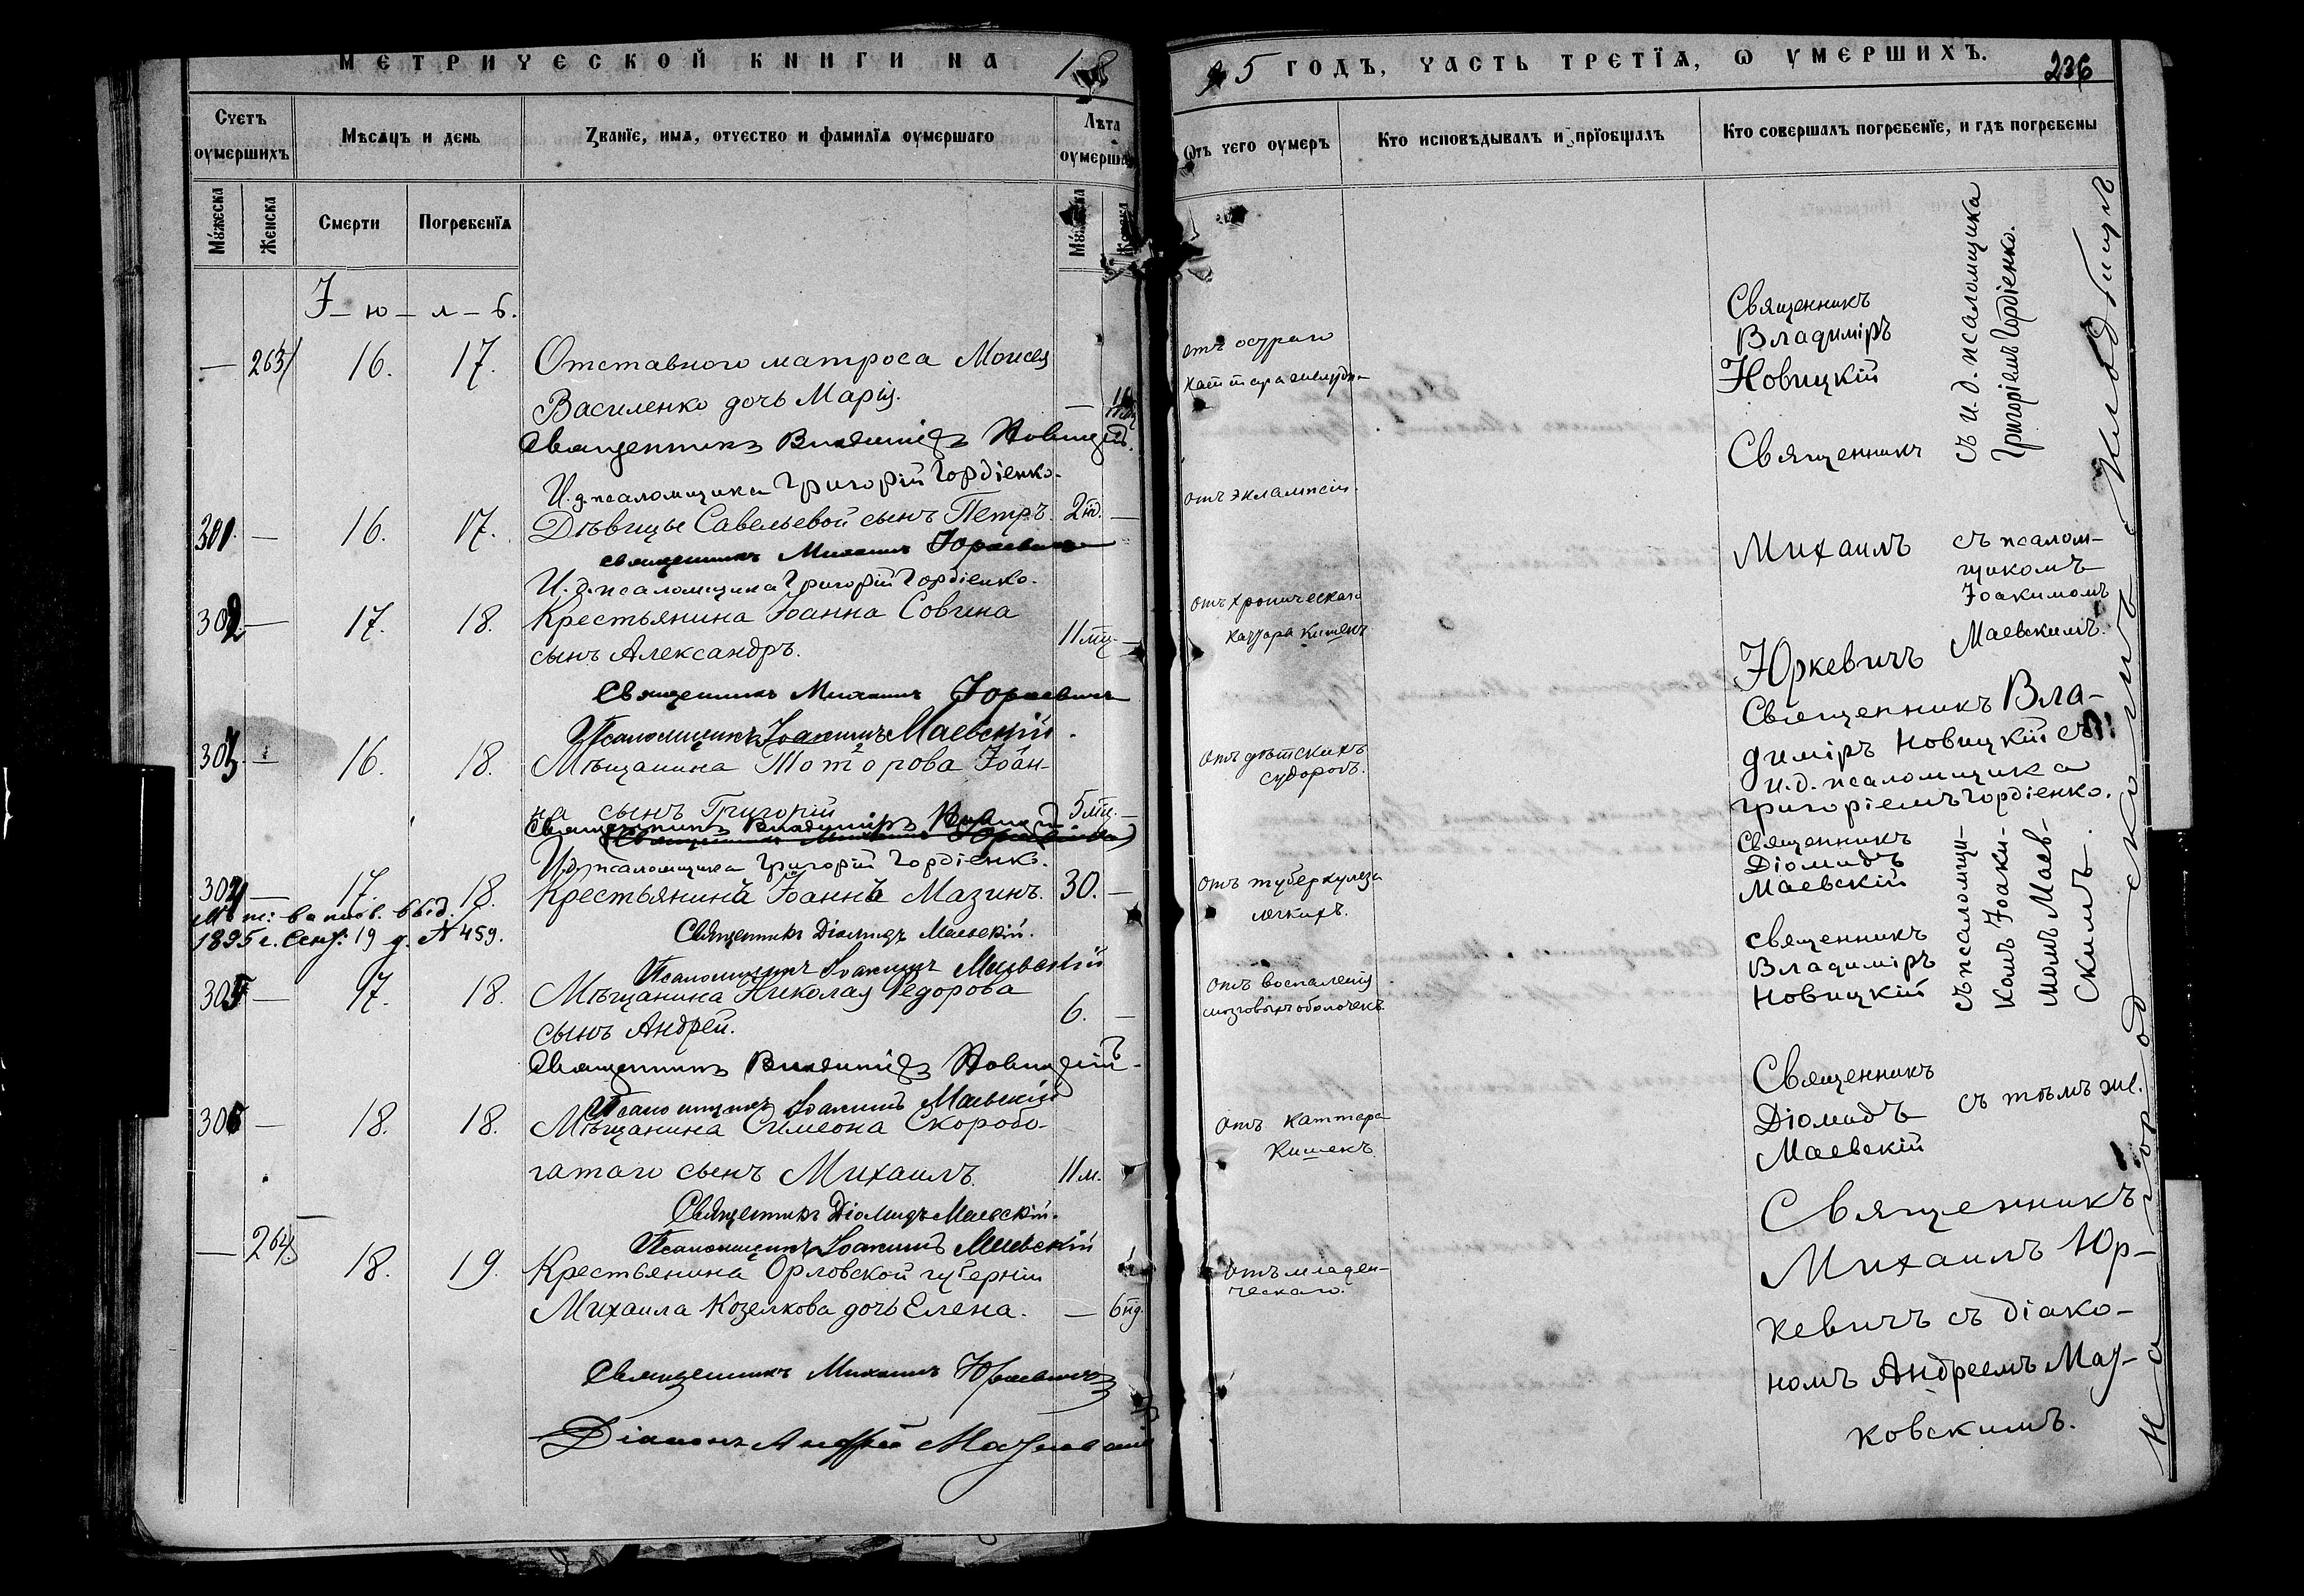 МЕТРИЧЕСКОЙ КНИГИ НА 18
Счетъ оумершихъ
Мѣсяцъ и день
Званїе, имя, отчество и фамилїя оумершаго
Лѣта оумершаго
Мужеска
Женска
Смерти
Погребенїя
Мужеска
Женска
І – ю – л – ь.
— 263 16. 17. Отставного матроса Моисея
Василенко дочь Марія. —
Священникъ Владиміръ Новицкій.
И. д. псаломщика Григорій Гордіенко.
301. — 16. 17. Дѣвицы Савельевой сынъ Петръ. 2 —
Священникъ Михаилъ Юркевичъ
И. д. псаломщика Григорій Гордіенко.
302 — 17. 18. Крестьянина Іоанна Совгина
сынъ Александръ. 11 мц. —
Священникъ Михаилъ Юркевичъ
Псаломщикъ Іоакимъ Маевскій.
303 — 16. 18. Мѣщанина Тоторова Іоан-
на сынъ Григорій 5 мц. —
Священникъ Владиміръ
И. д. псаломщика Григорій Гордіенко.
304 — 17. 18. Крестьянинъ Іоаннъ Мазинъ. 30. —
1895 г. Сент. 19 д. № 459.
Священникъ Діомидъ Маевскій.
Псаломщикъ Іоакимъ Маевскій
305 — 17. 18. Мѣщанина Николая Федорова
сынъ Андрей. 6. —
Священникъ Владиміръ Новицкій
Псаломщикъ Іоакимъ Маевскій
306 — 18. 18. Мѣщанина Симеона Скоробо-
гатаго сынъ Михаилъ. 11 м.
Священникъ Діомидъ Маевскій.
Псаломщикъ Іоакимъ Маевскій
— 264 18. 19. Крестьянина Орловской губерніи
Михаила Козелкова дочь Елена. — 6 нд.
Священникъ Михаилъ Юркевичъ
Діаконъ Андрей Мацковскій
95 ГОДЪ, ЧАСТЬ ТРЕТЇЯ, Ѡ УМЕРШИХЪ. 236
Ѿтъ чего оумеръ
Кто исповѣдывалъ и прїобщалъ
Кто совершалъ погребенїе, и гдѣ погребены
отъ остраго
отъ эклампсіи.
отъ хроническаго
катара кишекъ
отъ дѣтскихъ
судорогъ.
отъ туберкулеза
легкихъ.
отъ воспаленія
мозговыхъ оболочекъ.
отъ каттара
кишекъ.
отъ младен-
ческаго.
Священникъ
Владиміръ
Новицкій
съ и. д. псаломщика
Григоріемъ Гордіенко.
Священникъ
Михаилъ
Юркевичъ
съ псалом-
щикомъ
Іоакимомъ
Маевскимъ.
Священникъ Вла-
диміръ Новицкій съ
и. д. псаломщика
Григоріемъ Гордіенко.
Священникъ
Діомидъ
Маевскій
священникъ
Владиміръ
Новицкій
съ псаломщи-
комъ Іоаки-
момъ Маев-
скимъ.
Священникъ
Діомидъ
Маевскій
съ тѣмъ же.
Священникъ
Михаилъ Юр-
кевичъ съ діако-
номъ Андреемъ Мац-
ковскимъ.
На городскомъ кладбищѣ